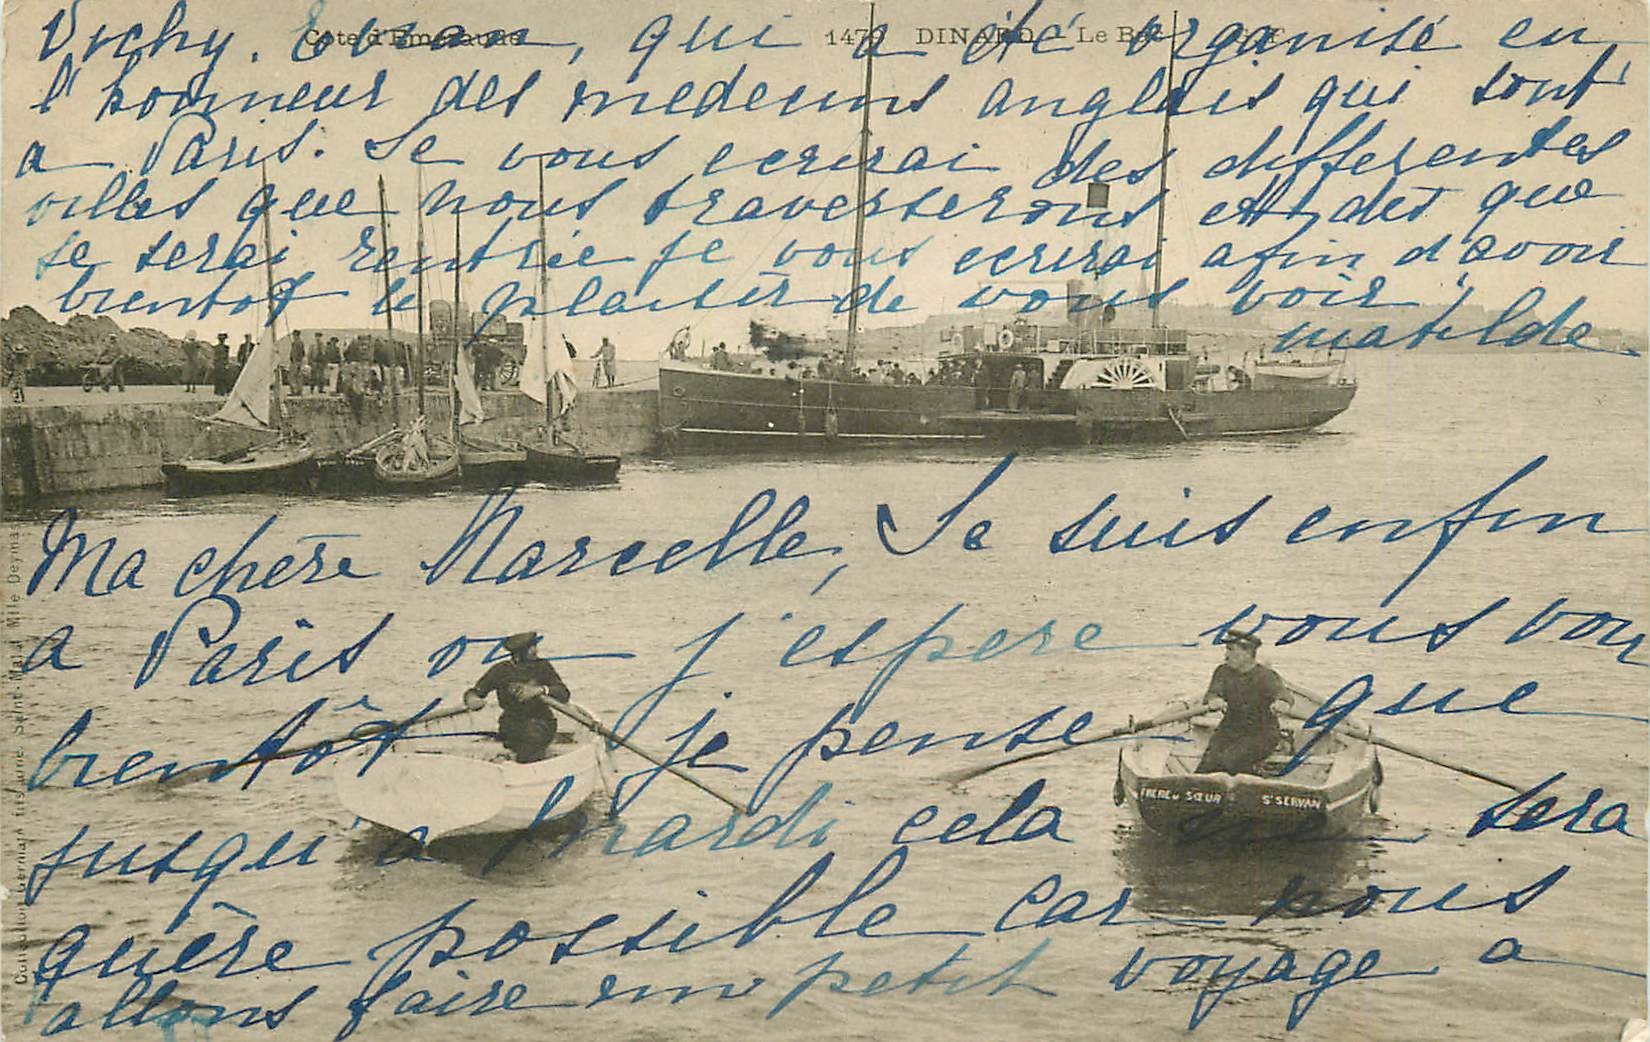 Côte d'Emeraude
1479 DINARD - Le
Ma chère Marcelle, Je suis enfin
a Paris ou j'espere vous voir
bientôt je pense que
jusqu'a mardi cela ne sera
guère possible car nous
allons faire un petit voyage a
Vichy. qui a été organisé en
l'honneur des medecins anglais qui sont
a Paris. Je vous ecrirai des differentes
villes que nous traverserons et des que
je serai rentrée je vous ecrirai afin d'avoir
bientot le plaisir de vous voir.
matilde
FRERE & SŒUR ST SERVAN
Collection Germain fils aîné, Saint-Malo